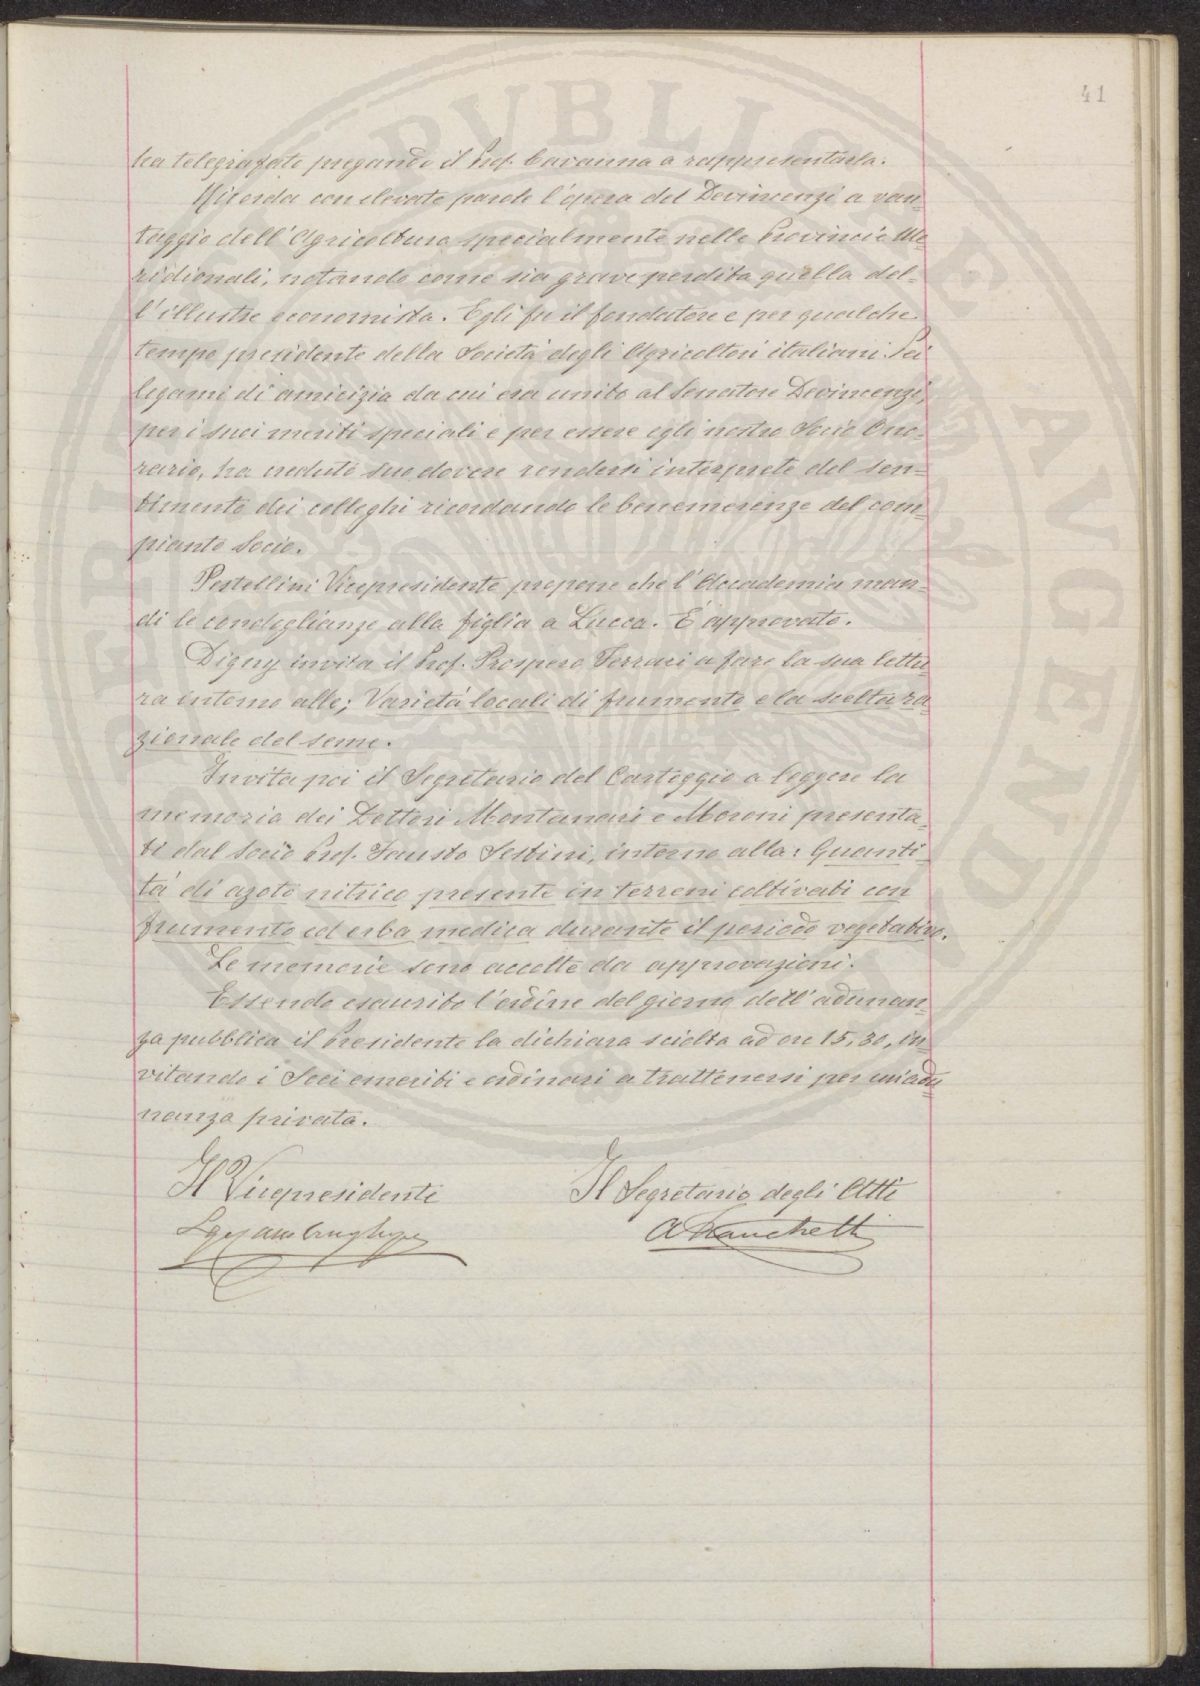 41
ha telegrafato pregando il Prof. Cavanna a rappresentarla.
Ricorda con elevate parole l'opera del Devincenzi a van-
taggio dell'Agricoltura specialmente nelle Provincie Me-
ridionali, notando come sia grave perdita quella del-
l'illustre economista. Egli fu il fondatore e per qualche
tempo presidente della Società degli Agricoltori italiani. Pei
legami di amicizia da cui era unito al Senatore Devincenzi,
per i suoi meriti speciali e per essere egli nostro Socio Ono-
rario, ha creduto suo dovere rendersi interprete del sen-
timento dei colleghi ricordando le benemerenze del com-
pianto Socio.
Pestellini Vicepresidente propone che l'Accademia man-
di le condoglianze alla figlia a Lucca. È approvato.
Digny invita il Prof. Prospero Ferrari a fare la sua lettu-
ra intorno alle; Varietà locali di frumento e la scelta ra-
zionale del seme.
Invita poi il Segretario del Carteggio a leggere la
memoria dei Dottori Montanari e Moroni presenta-
ti dal Socio Prof. Fausto Sestini, intorno alla: Quanti-
tà di azoto nitrico presente in terreni coltivati con
frumento ed erba medica durante il periodo vegetativo.
Le memorie sono accolte da approvazioni.
Essendo esaurito l'ordine del giorno dell'adunan-
za pubblica il Presidente la dichiara sciolta ad ore 15,30, in-
vitando i Soci emeriti e ordinari a trattenersi per un'adu-
nanza privata.
Il Vicepresidente
Il Segretario degli Atti
A Franchetti
PUBLICAE AVGENDAE